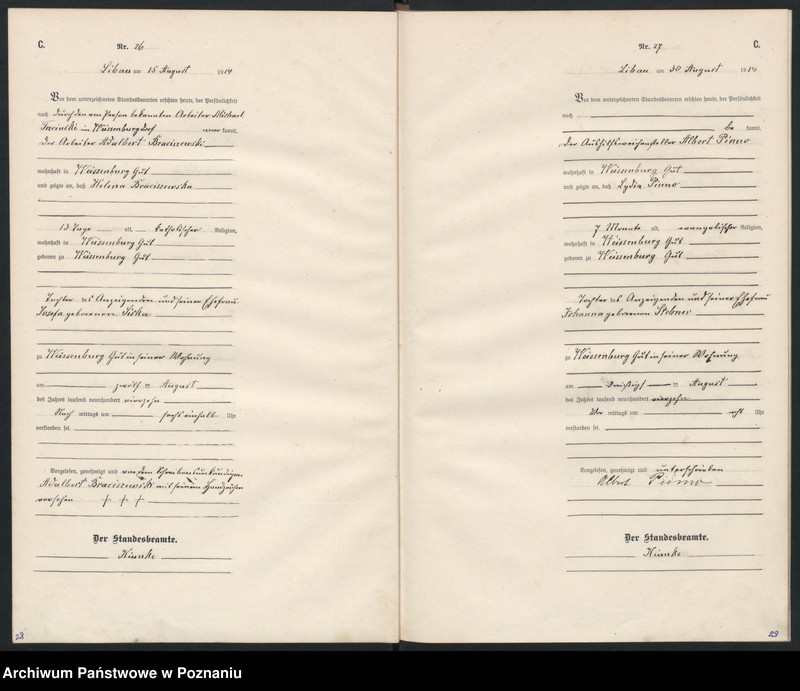 C.
Nr. 26
Libau am 15 August 1914
Vor dem unterzeichneten Standesbeamten erschien heute, der Persönlichkeit
nach durch den von Person bekannten Arbeiter Michael
in Weissenburgdorf kannt,
der Arbeiter Adalbert Braciszewski
wohnhaft in Weissenburg Gut
und zeigte an, daß Helena Braciszewska
13 Tage alt, katholischer Religion,
wohnhaft in Weissenburg Gut
geboren zu Weissenburg Gut
Tochter des Anzeigenden und seiner Ehefrau
Josefa geborenen
zu Weissenburg Gut in seiner Wohnung
am August
des Jahres tausend neunhundert vierzehn
Nach mittags um sechs einhalb Uhr
verstorben sei.
Vorgelesen, genehmigt und von dem Schreibensunkundigen
Adalbert Braciszewski mit seinem Handzeichen
versehen + + +
Der Standesbeamte.
28
Nr. 27
C.
Libau am 30 August 1914
Vor dem unterzeichneten Standesbeamten erschien heute, der Persönlichkeit
nach
be kannt,
der Aushilfsweichensteller Albert Pinno
wohnhaft in Weissenburg Gut
und zeigte an, daß Lydia Pinno
7 Monate alt, evangelischer Religion,
wohnhaft in Weissenburg Gut
geboren zu Weissenburg Gut
Tochter des Anzeigenden und seiner Ehefrau
Johanna geborenen
zu Weissenburg Gut in seiner Wohnung
am dreißigsten August
des Jahres tausend neunhundert vierzehn
Vor mittags um acht Uhr
verstorben sei.
Vorgelesen, genehmigt und unterschrieben
Albert Pinno
Der Standesbeamte.
29
Archiwum Państwowe w Poznaniu